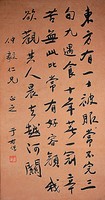 東方有一士被服常不完三
旬九遇食十年著一冠辛
苦無此比常有好容顏我
欲觀其人晨去越河關
仁兄正之 于右任